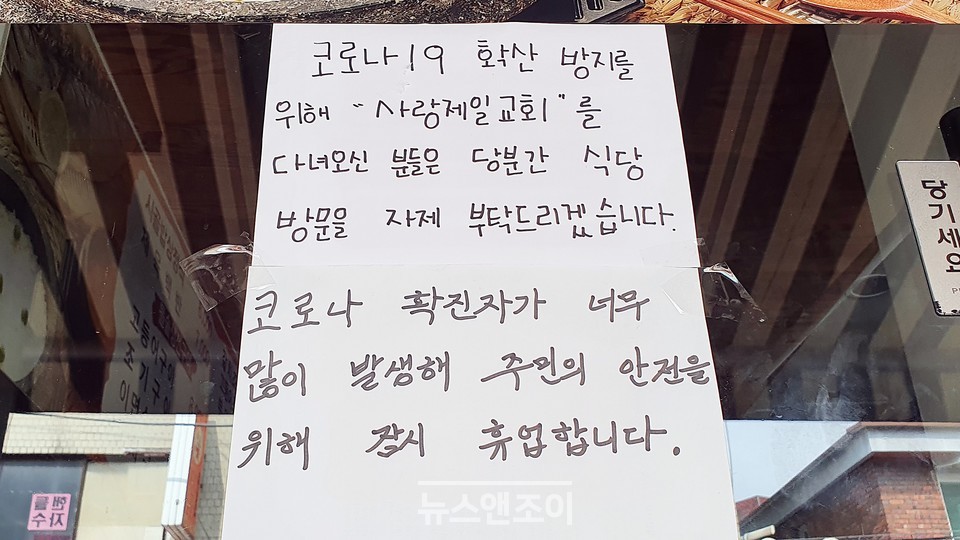 코로나19 확산 방지를
위해 "사랑제일교회"를
다녀오신 분들은 당분간 식당
방문을 자제 부탁드리겠습니다.
코로나 확진자가 너무
많이 발생해 주민의 안전을
위해 잠시 휴업합니다.
당기세요
뉴스앤조이